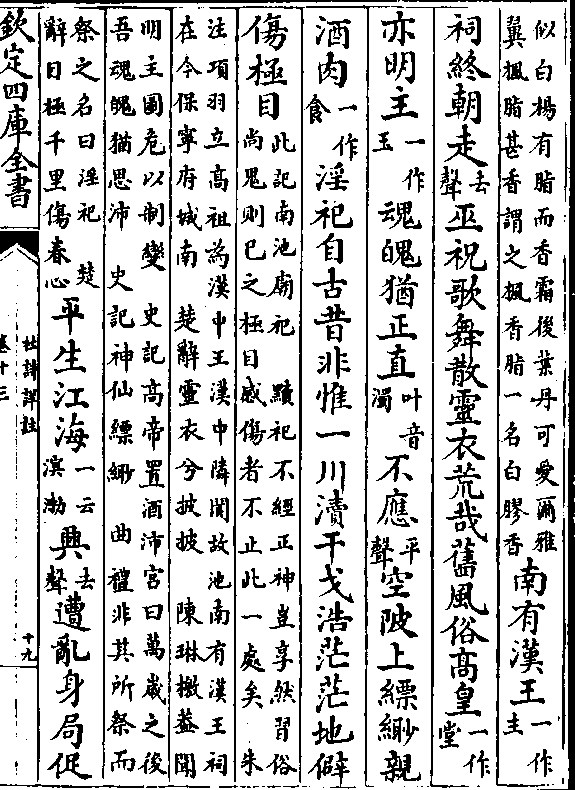 似白楊有脂而香霜後葉丹可愛爾雅
翼楓脂甚香謂之楓香脂一名白膠香
南有漢王一作主
祠終朝走去聲巫祝歌舞散靈衣荒哉舊風俗高皇一作堂
亦明主一作王魂魄猶正直叶音濁不應平聲空陂上縹緲親
酒肉一作食淫祀自古昔非惟一川瀆干戈浩茫茫地僻
傷極目
此記南池廟祀　黷祀不經正神豈享然習俗
尚鬼則已之極目感傷者不止此一處矣　朱
注項羽立高祖為漢中王漢中隣閬故池南有漢王祠
在今保寧府城南　楚辭靈衣兮披披　陳琳檄葢聞
明主圖危以制變　史記高帝置酒沛宮曰萬歲之後
吾魂魄猶思沛　史記神仙縹緲　曲禮非其所祭而
祭之名曰淫祀　楚
辭目極千里傷春心
平生江海一云溟渤興去聲遭亂身局促
欽定四庫全書
杜詩詳註
卷十三
十九